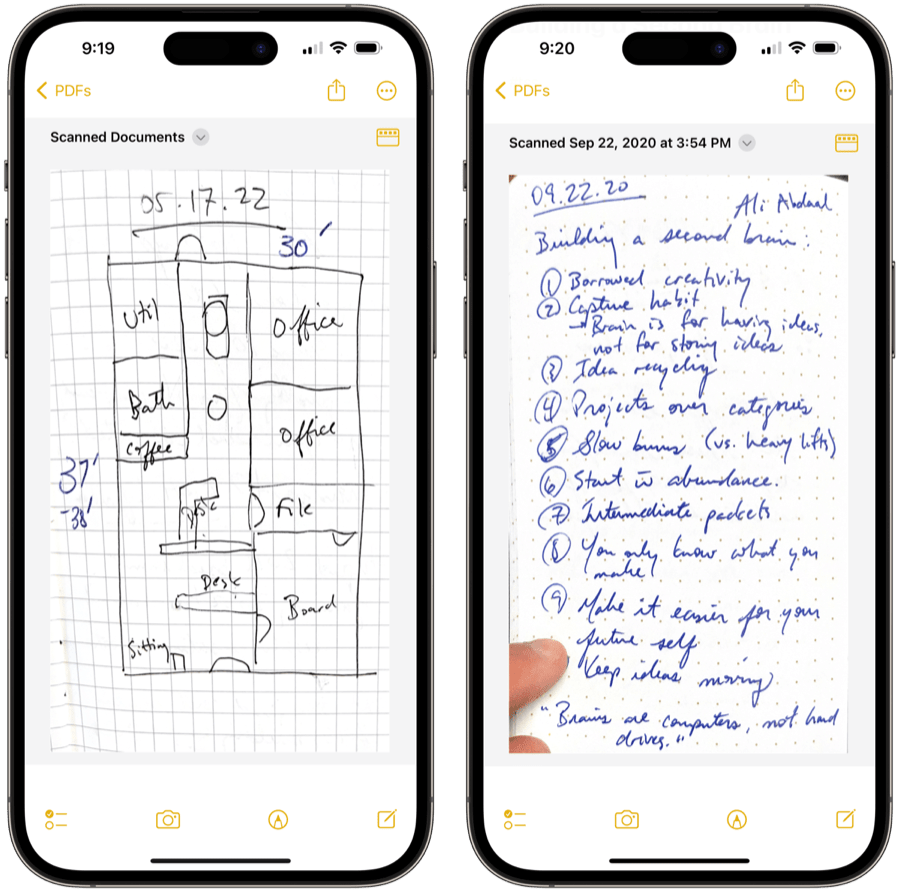 9:19
PDFs
Scanned Documents
05.17.22
30'
Util
Office
Bath
Office
Coffee
37'
-38'
Desk
File
Desk
Board
Sitting
9:20
PDFs
Scanned Sep 22, 2020 at 3:54 PM
09.22.20
Ali Abdaal
Building a second brain:
① Borrowed creativity
② Capture habit
→ Brain is for having ideas,
not for storing ideas.
③ Idea recycling
④ Projects over categories
⑤ Slow burns (vs. heavy lifts)
⑥ Start w abundance.
⑦ Intermediate packets
⑧ You only know what you
make
⑨ Make it easier for your
future self
Keep ideas moving
"Brains are computers, not hard
drives."